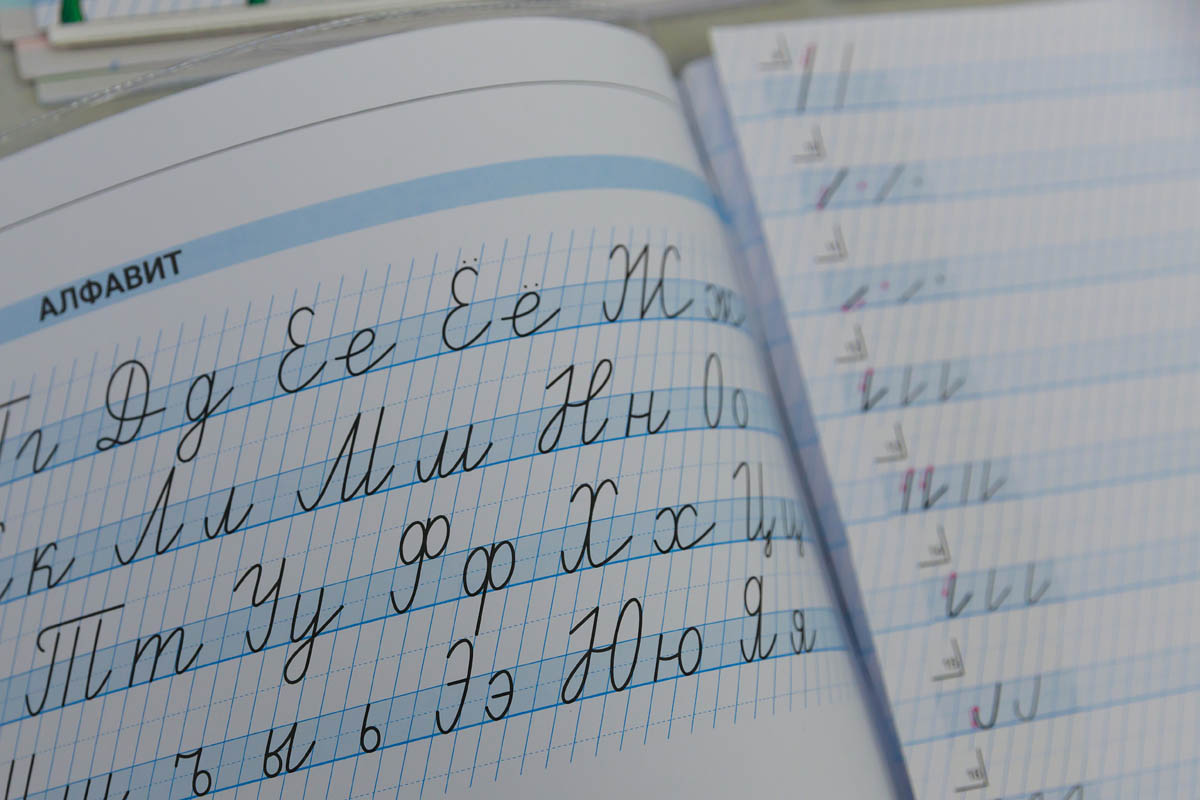 АЛФАВИТ
Гг Дд Ее Ёё Жж
к Лл Мм Нн Оо
Тт Уу Фф Хх Цц
ъ ы ь Ээ Юю Яя